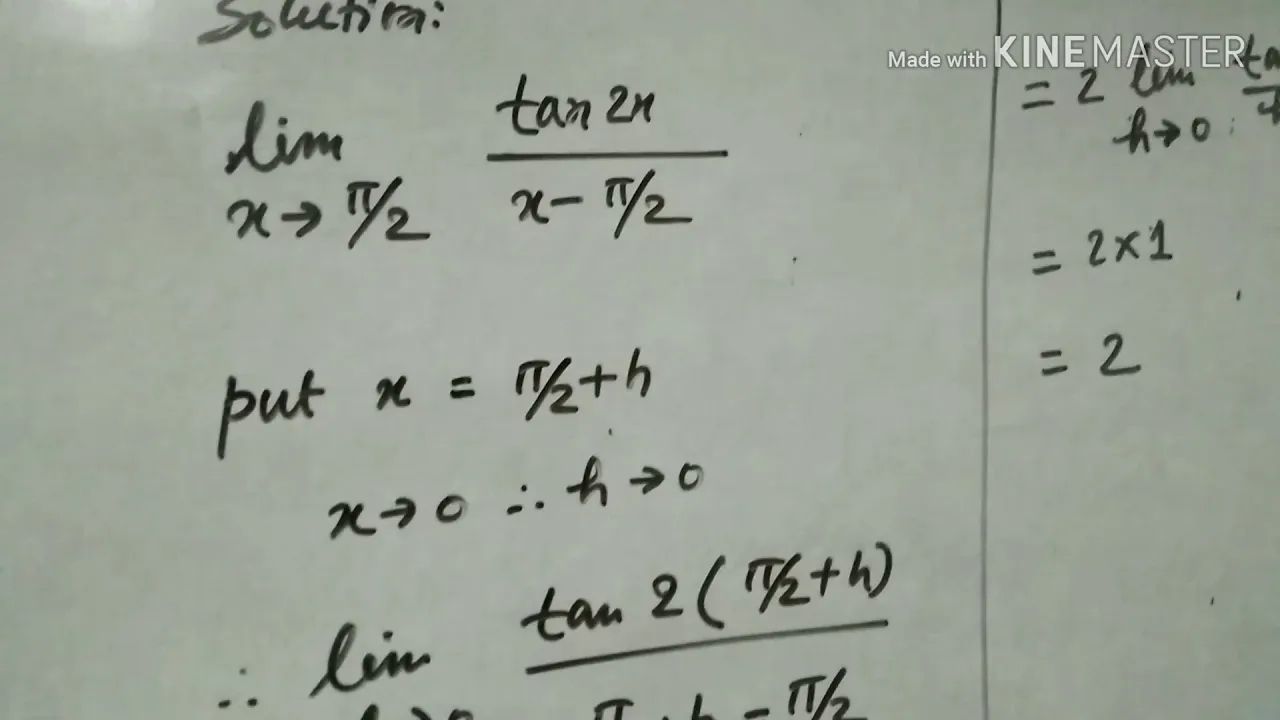 Solution:
lim tan 2x
x→π/2 x-π/2
put x = π/2+h
x→0 ∴ h→0
tan 2(π/2+h)
∴ lim
h - π/2
Made with KINEMASTER
= 2 lim
h→0
= 2×1
= 2